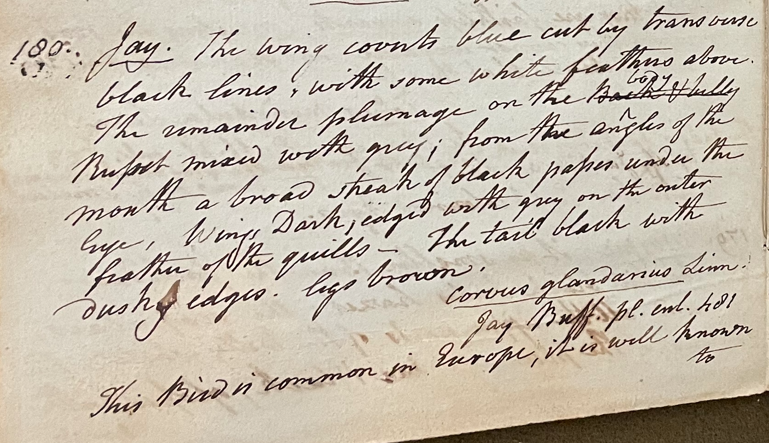 180. Jay. The wing coverts blue cut by transverse
black lines, with some white feathers above.
The remainder plumage on the body
Russet mixed with grey; from the angles of the
mouth a broad streak of black passes under the
Eye, Wing Dark, edged with grey on the outer
feather of the quills — The tail black with
dusky edges. legs brown.
Corvus glandarius Linn.
Jay Buff. pl. enl. 481
This Bird is common in Europe, it is well known
to